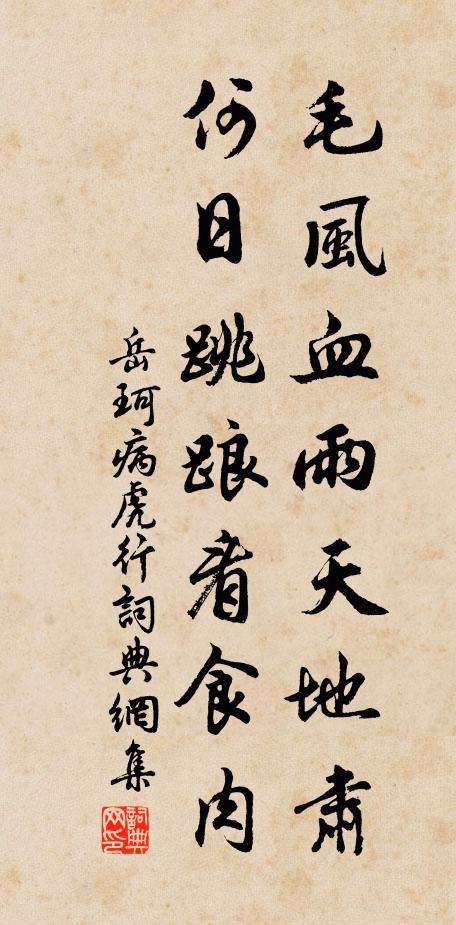 毛風血雨天地肅
何日跳踉看食肉
岳珂病虎行詞典網集
詞典網印